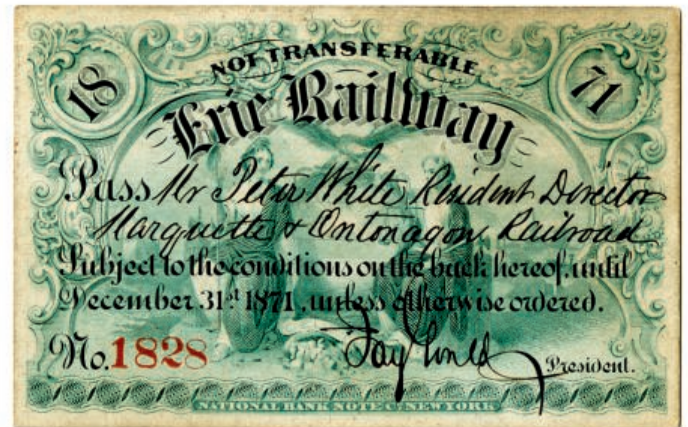 18 71
NOT TRANSFERABLE
Erie Railway
Pass Mr Peter White Resident Director
Marquette & Ontonagon Railroad
Subject to the conditions on the back hereof, until
December 31st 1871, unless otherwise ordered.
No. 1828 Jay Gould President.
NATIONAL BANK NOTE CO. NEW YORK